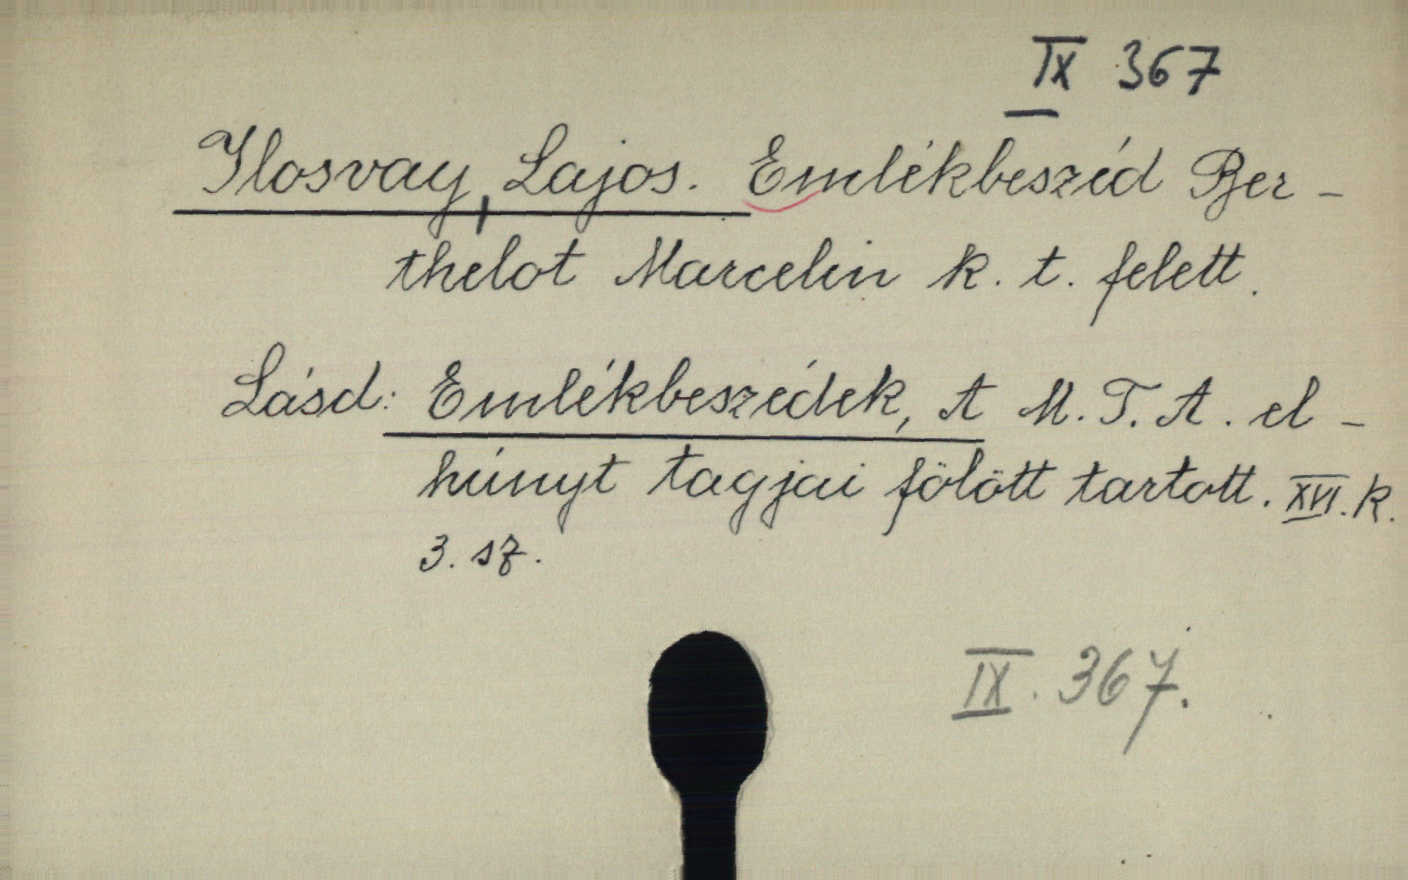 IX 367
Ilosvay, Lajos. Emlékbeszéd Ber-
thelot Marcelin k. t. felett.
Lásd: Emlékbeszédek, A M. T. A. el-
húnyt tagjai fölött tartott. XVI. k.
3. sz.
IX. 367.